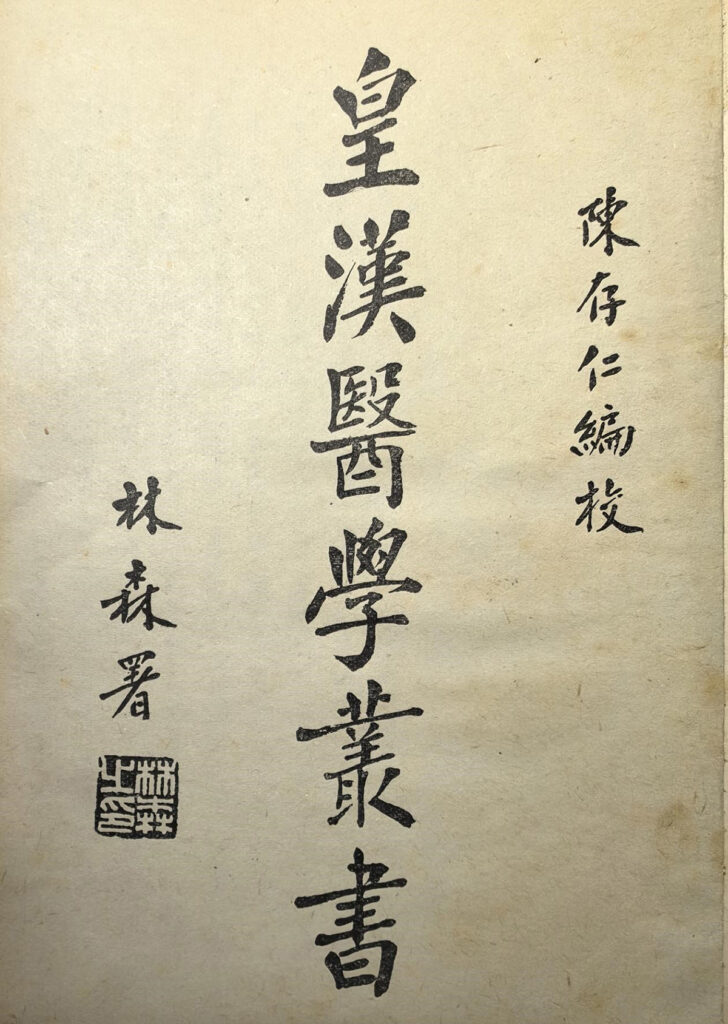 陳存仁編校
皇漢醫學叢書
林森署
林森之印